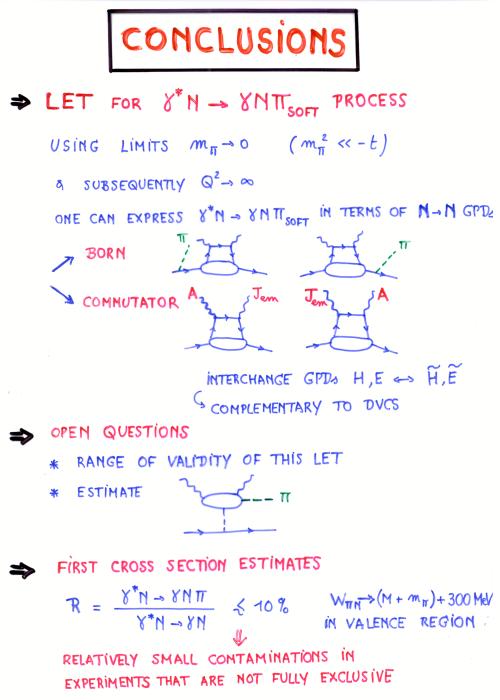 CONCLUSIONS
⇒ LET FOR γ*N → γNπ_SOFT PROCESS
USING LIMITS m_π → 0 (m_π² << -t)
& SUBSEQUENTLY Q² → ∞
ONE CAN EXPRESS γ*N → γNπ_SOFT IN TERMS OF N→N GPDs
π π
BORN
COMMUTATOR A J_em J_em A
INTERCHANGE GPDs H,E ↔ H̃,Ẽ
↪ COMPLEMENTARY TO DVCS
⇒ OPEN QUESTIONS
* RANGE OF VALIDITY OF THIS LET
* ESTIMATE π
⇒ FIRST CROSS SECTION ESTIMATES
R = (γ*N → γNπ) / (γ*N → γN) ≲ 10% W_πN → (M + m_π) + 300 MeV
IN VALENCE REGION
⇓
RELATIVELY SMALL CONTAMINATIONS IN
EXPERIMENTS THAT ARE NOT FULLY EXCLUSIVE